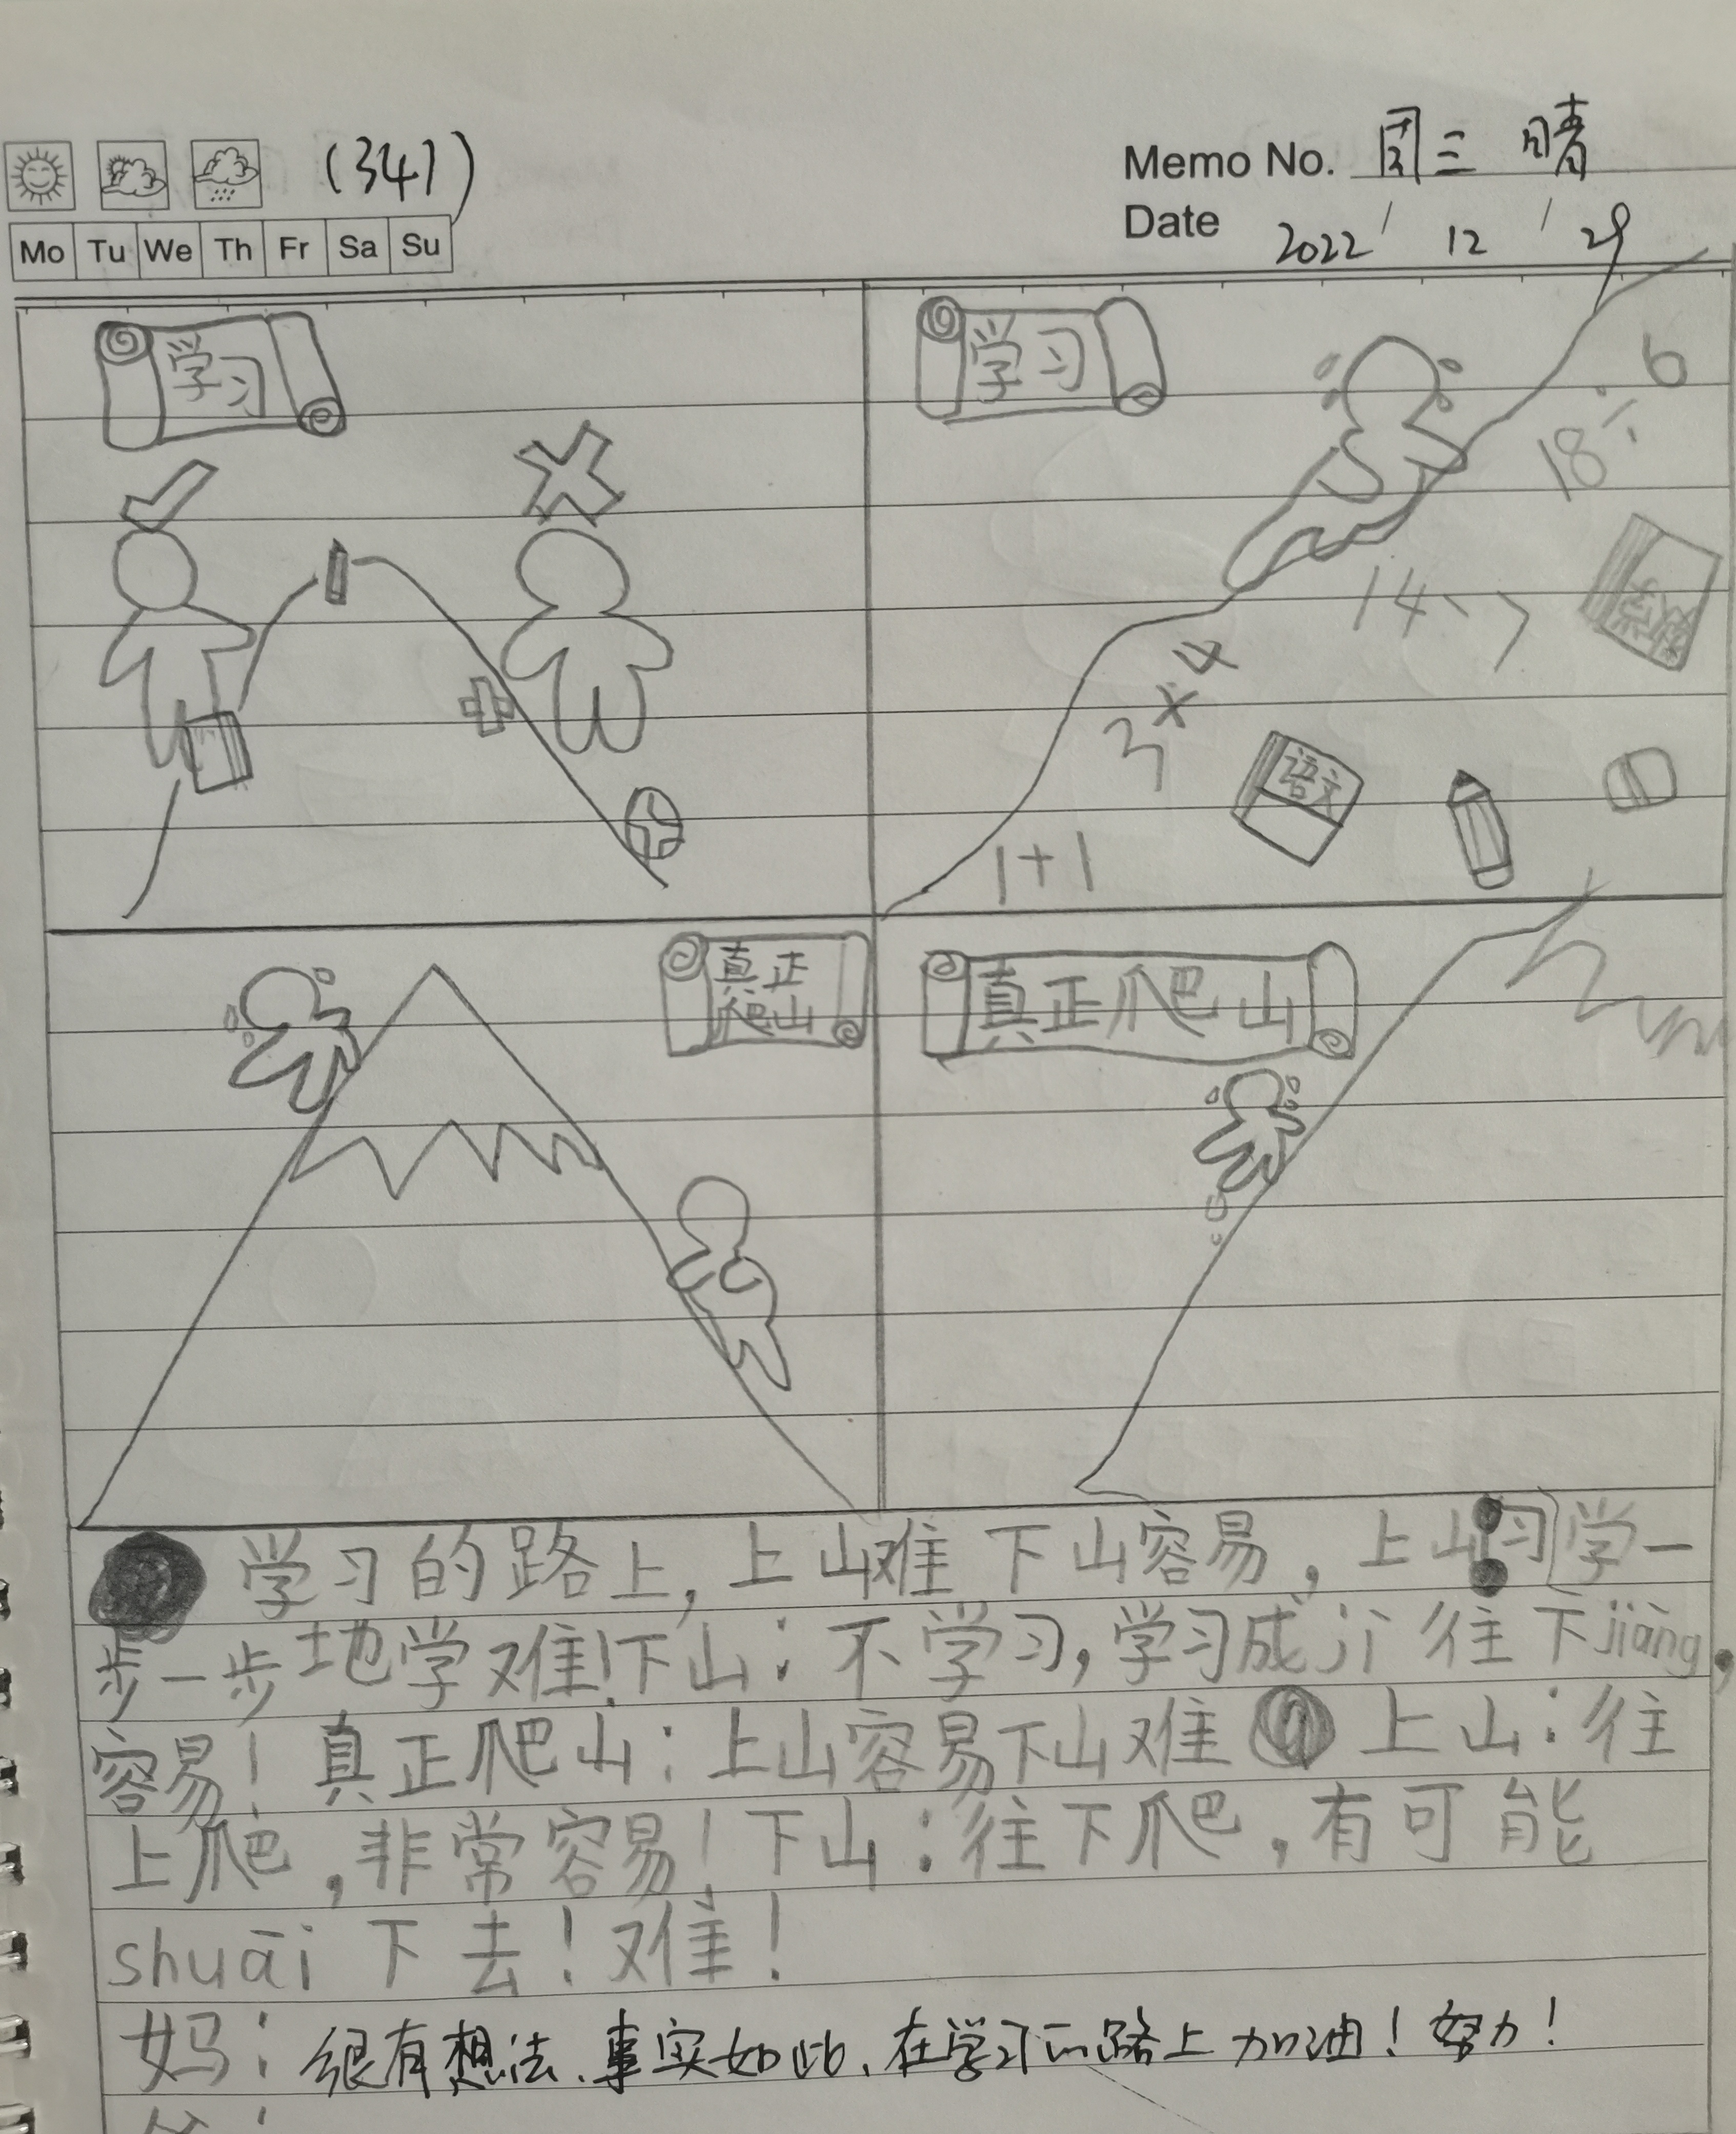 (341)
Memo No. 周三 晴
Mo Tu We Th Fr Sa Su
Date 2022 / 12 / 29
学习
学习
18÷6
14->7
3×4
语文
1+1
真正
爬山
真正爬山
学习的路上,上山难下山容易,上山习学一
步一步地学难!下山:不学习,学习成jì往下jiàng,
容易!真正爬山:上山容易下山难 上山:往
上爬,非常容易!下山:往下爬,有可能
shuāi下去!难!
妈:很有想法、事实如此、在学习的路上加油!努力!